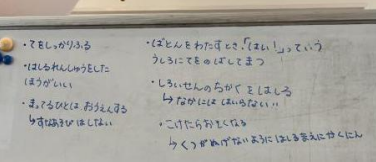 ・てをしっかりふる
・はしるれんしゅうをした
ほうがいい
・まってるひとは、おうえんする
↳すなあそびはしない
・ばとんをわたすとき、「はい!」っていう
うしろにてをのばしてまつ
・しろいせんのちかくをはしる
↳なかにははいらない
・こけたらおそくなる
↳くつがぬげないようにはしるまえにかくにん